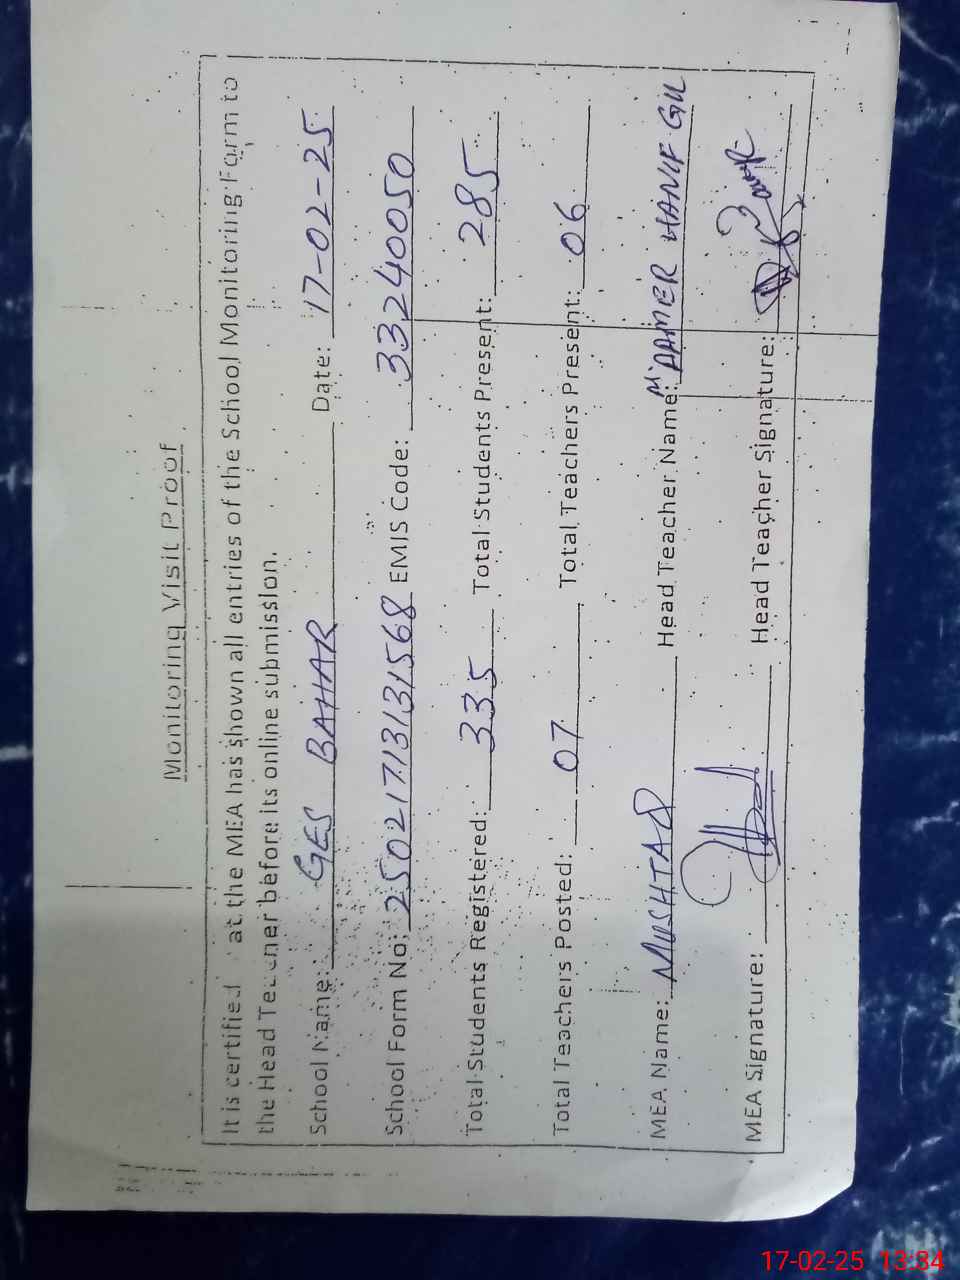 Monitoring Visit Proof
It is certified at the MEA has shown all entries of the School Monitoring Form to
the Head Teacher before its online submission.
School Name: GES BAHAR Date: 17-02-25
School Form No: 25021713131568 EMIS Code: 33240050
Total Students Registered: 335 Total Students Present: 285
Total Teachers Posted: 07 Total Teachers Present: 06
MEA Name: MUSHTAQ Head Teacher Name: M. AAMER HANIF GILL
MEA Signature: Head Teacher Signature:
17-02-25 13:34